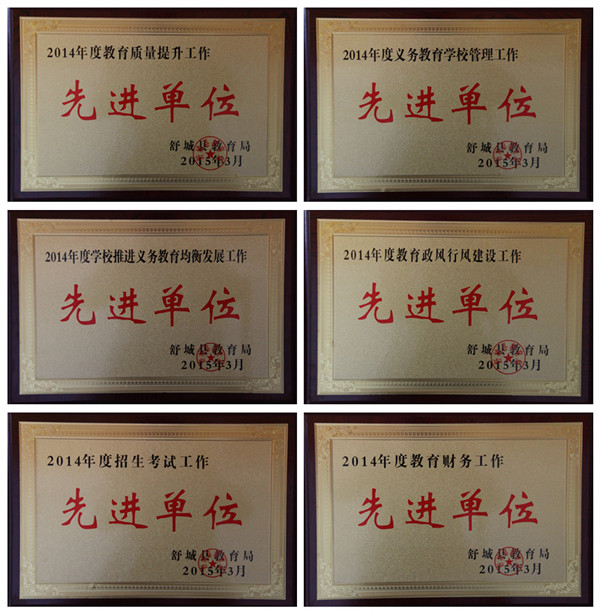 2014年度教育质量提升工作
先进单位
舒城县教育局
2015年3月
2014年度义务教育学校管理工作
先进单位
舒城县教育局
2015年3月
2014年度学校推进义务教育均衡发展工作
先进单位
舒城县教育局
2015年3月
2014年度教育政风行风建设工作
先进单位
舒城县教育局
2015年3月
2014年度招生考试工作
先进单位
舒城县教育局
2015年3月
2014年度教育财务工作
先进单位
舒城县教育局
2015年3月